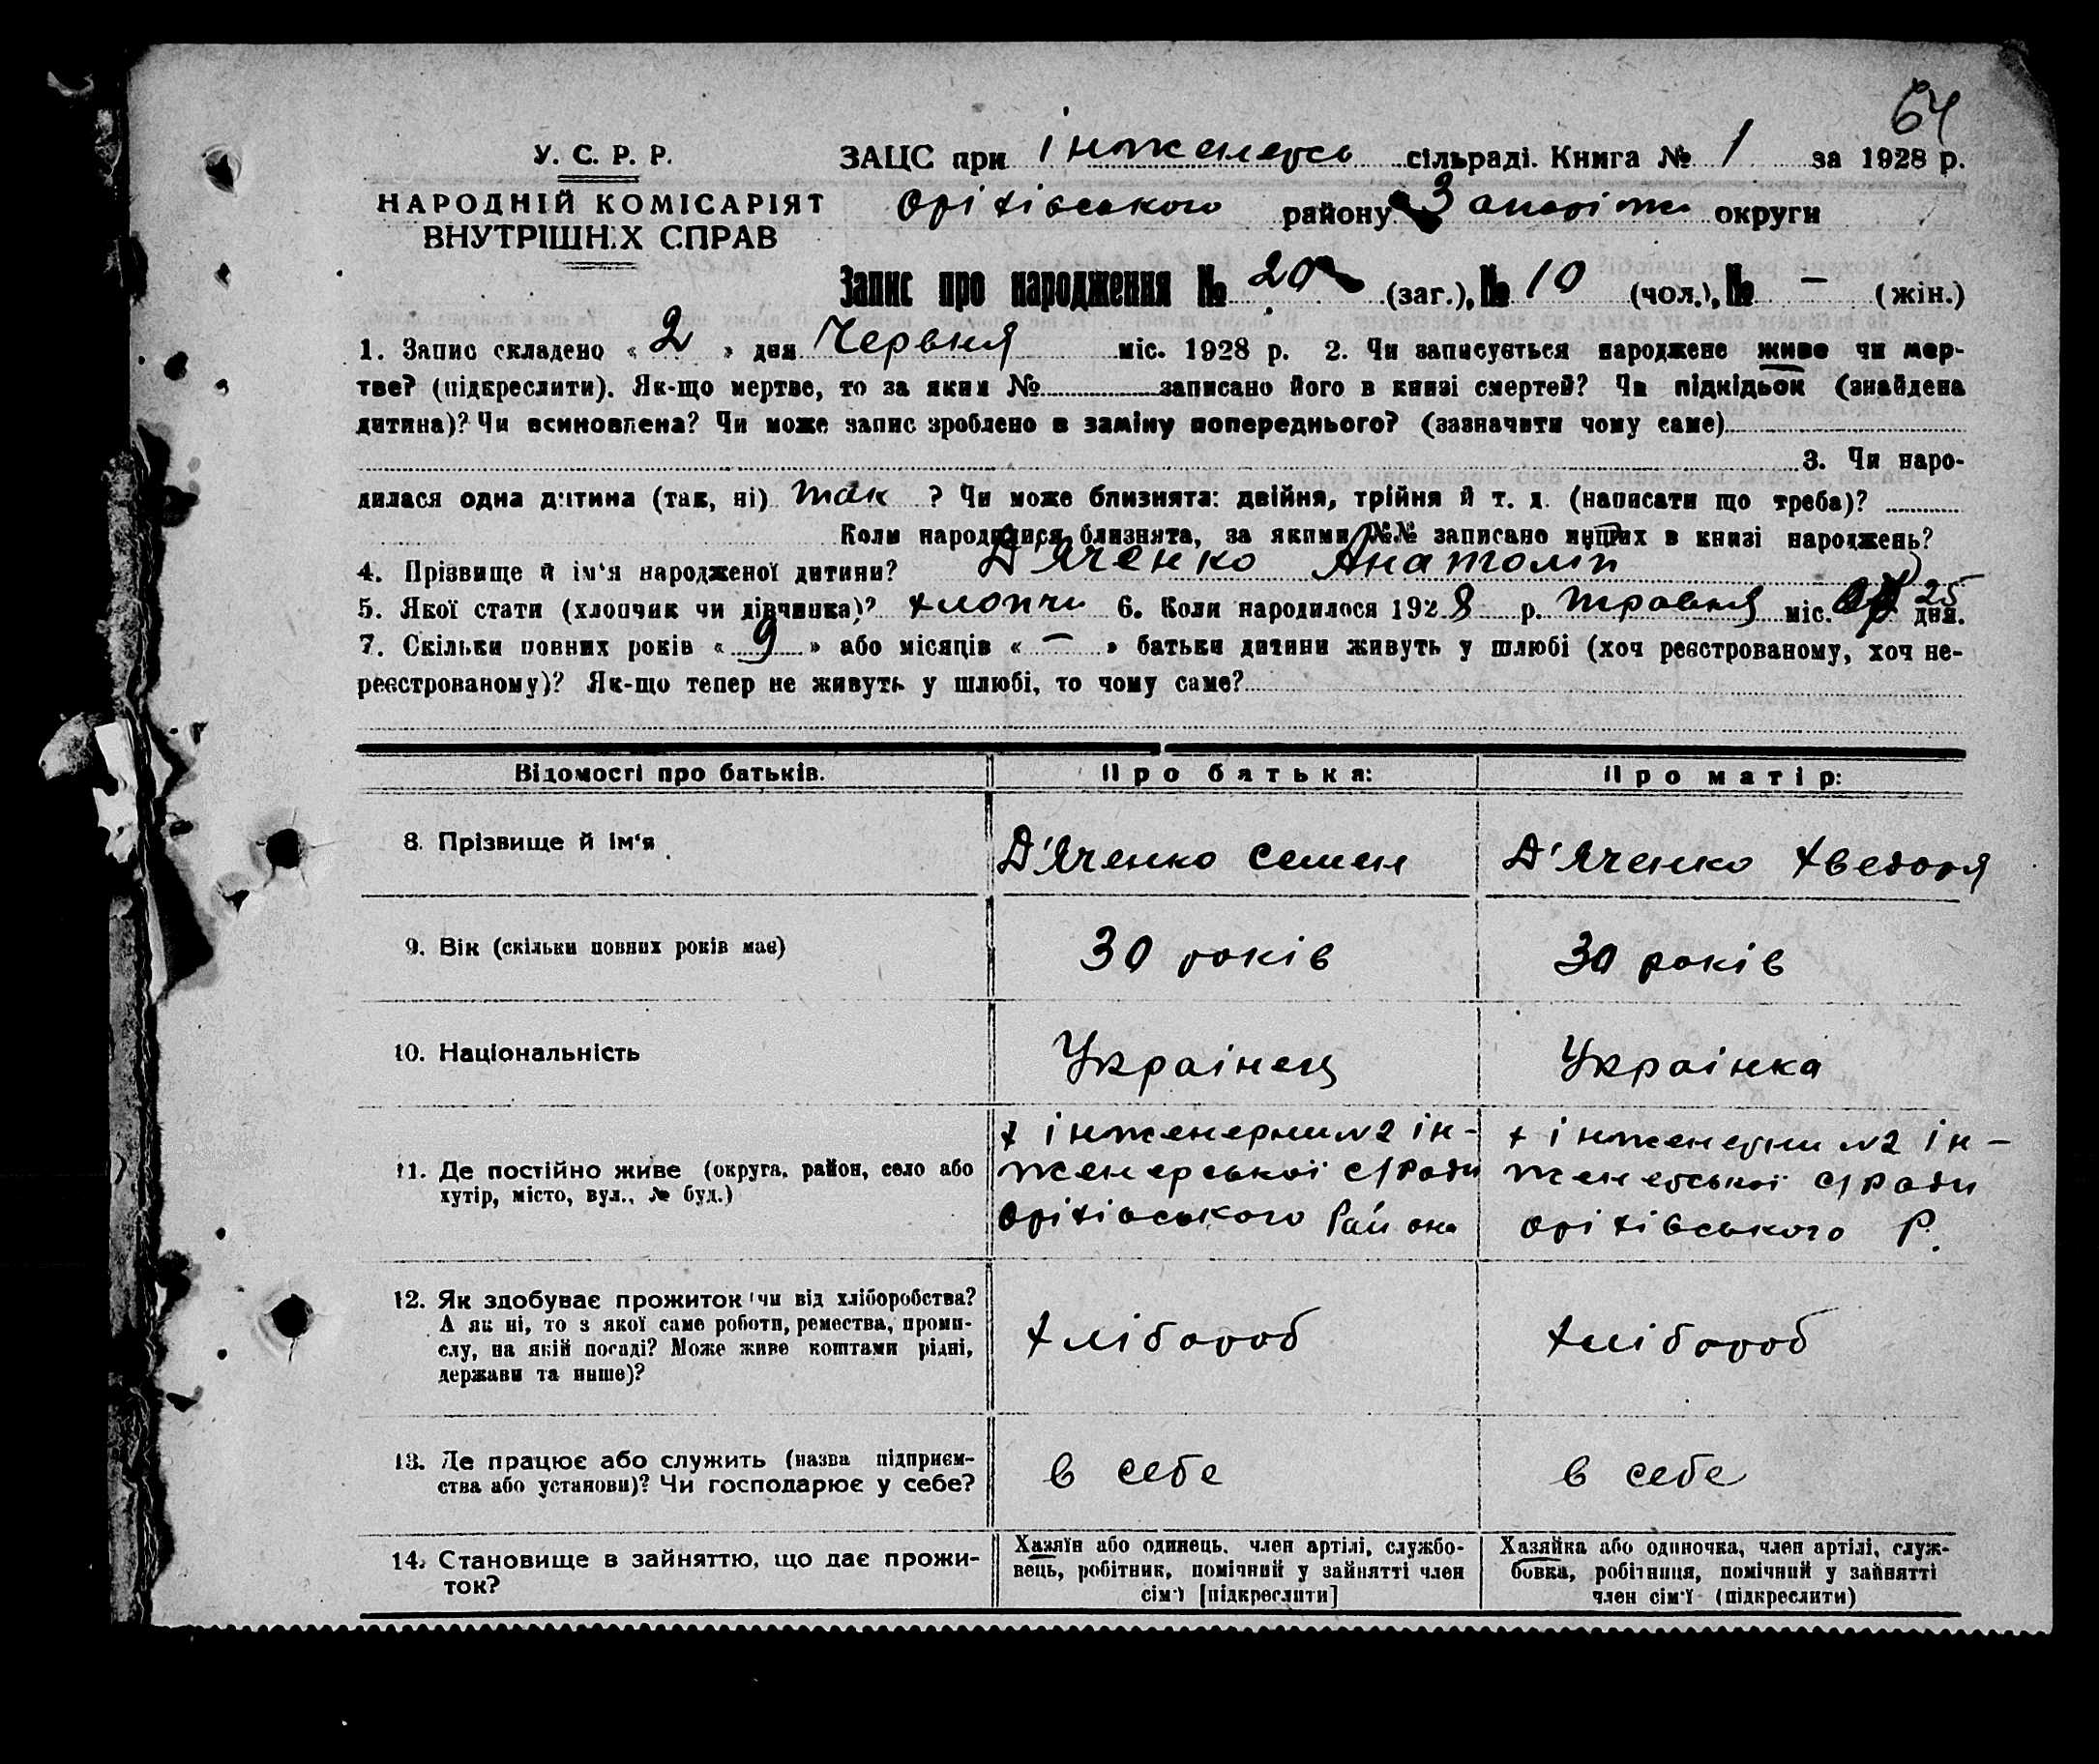 64
У. С. Р. Р.
НАРОДНІЙ КОМІСАРІЯТ
ВНУТРІШНІХ СПРАВ
ЗАЦС при інженерсь сільраді. Книга № 1 за 1928 р.
Оріхівського району Запоріж округи
Запис про народження № 20 (заг.), № 10 (чол.), № — (жін.)
1. Запис складено « 2 » дня Червня міс. 1928 р. 2. Чи записується народжене живе чи мер-
тве? (підкреслити). Як-що мертве, то за яким № записано його в книзі смертей? Чи підкідьок (знайдена
дитина)? Чи всиновлена? Чи може запис зроблено в заміну попереднього? (зазначити чому саме)
3. Чи наро-
дилася одна дитина (так, ні) так ? Чи може близнята: двійня, трійня й т. д. (написати що треба)?
Коли народилися близнята, за якими №№ записано инших в книзі народжень?
4. Прізвище й ім‘я народженої дитини? Д'Яченко Анатолій
5. Якої стати (хлопчик чи дівчинка)? хлопчи 6. Коли народилося 1928 р. травня міс. 25 дня.
7. Скільки повних років « 9 » або місяців « — » батьки дитини живуть у шлюбі (хоч реєстрованому, хоч не-
реєстрованому)? Як-що тепер не живуть у шлюбі, то чому саме?
Відомості про батьків. Про батька: Про матір:
8. Прізвище й ім‘я Д'Яченко Семен Д'Яченко Хведоря
9. Вік (скільки повних років має) 30 років 30 років
10. Національність Українец Українка
11. Де постійно живе (округа, район, село або
хутір, місто, вул., № буд.)
х інженерни №2 ін-
женерської с/Ради
Оріхівського Району
х інженерни №2 ін-
женерської с/Ради
Оріхівського Р.
12. Як здобуває прожиток чи від хліборобства?
А як ні, то з якої саме роботи, ремества, проми-
слу, на якій посаді? Може живе коштами рідні,
держави та инше)?
хлібороб хлібороб
13. Де працює або служить (назва підприєм-
ства або установи)? Чи господарює у себе?
в себе в себе
14. Становище в зайняттю, що дає прожи-
ток?
Хазяїн або одинець, член артілі, службо-
вець, робітник, помічний у зайнятті член
сім‘ї [підкреслити]
Хазяйка або одиночка, член артілі, служ-
бовка, робітниця, помічний у зайнятті
член сім‘ї (підкреслити)